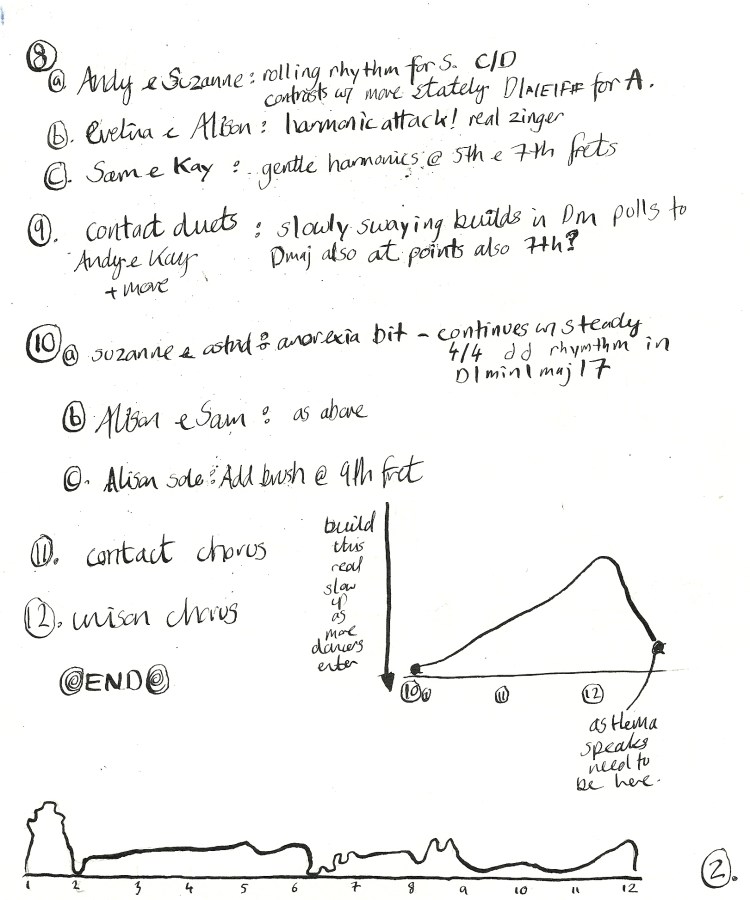 ⑧
ⓐ Andy e Suzanne : rolling rhythm for S. C/D
contrasts w/ more stately D|A|E|F# for A.
ⓑ. Evelina e Alison : harmonic attack! real zinger
ⓒ. Sam e Kay : gentle harmonics @ 5th e 7th frets
⑨. contact duets : slowly swaying builds in Dm polls to
Andy e Kay Dmaj also at points also 7th?
+ move
⑩ ⓐ suzanne e astrid : anorexia bit - continues w/ steady
4/4 dd rhymthm in
D|min|maj|7
ⓑ Alison e Sam : as above
ⓒ. Alison solo : Add brush @ 9th fret
⑪. contact chorus
⑫. unison chorus
@END@
build
this
real
slow
up
as
more
dancers
enter
⑩ ⑪ ⑫
as Hema
speaks
need to
be here.
1 2 3 4 5 6 7 8 9 10 11 12
②.